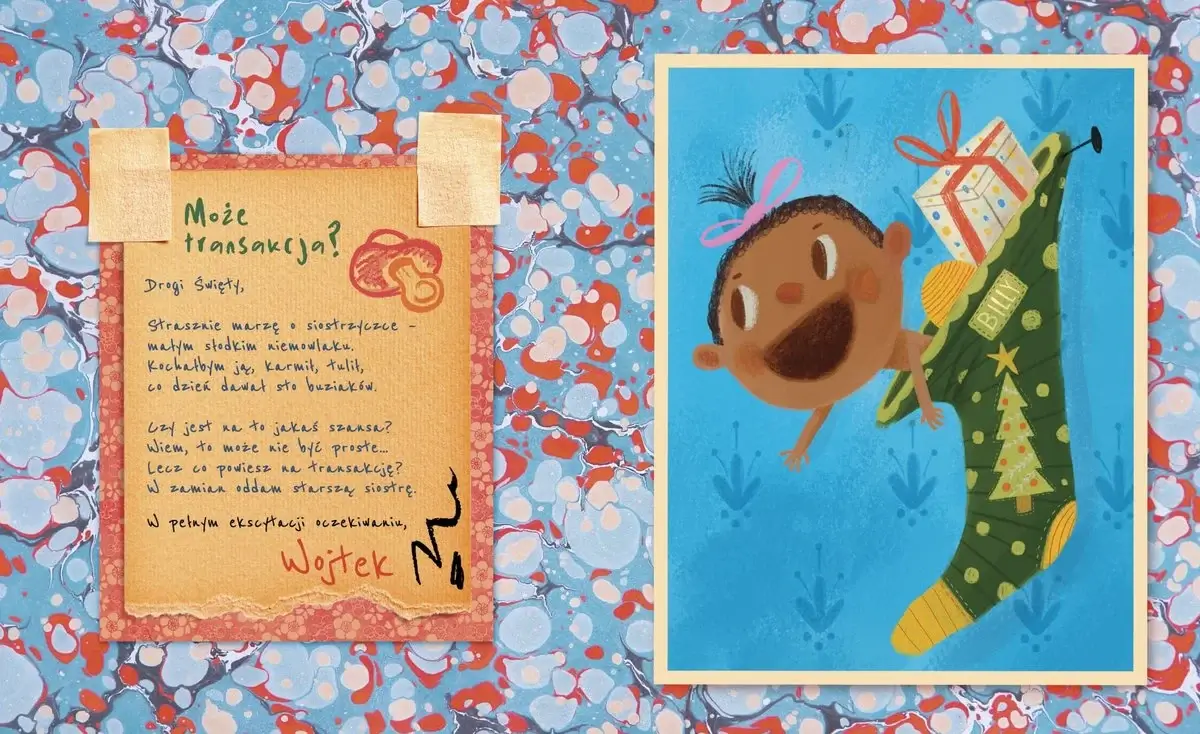 Może
transakcja?
Drogi Święty,
Strasznie marzę o siostrzyczce –
małym słodkim niemowlaku.
Kochałbym ją, karmił, tulił,
co dzień dawał sto buziaków.
Czy jest na to jakaś szansa?
Wiem, to może nie być proste...
Lecz co powiesz na transakcję?
W zamian oddam starszą siostrę.
W pełnym ekscytacji oczekiwaniu,
Wojtek
BILLY